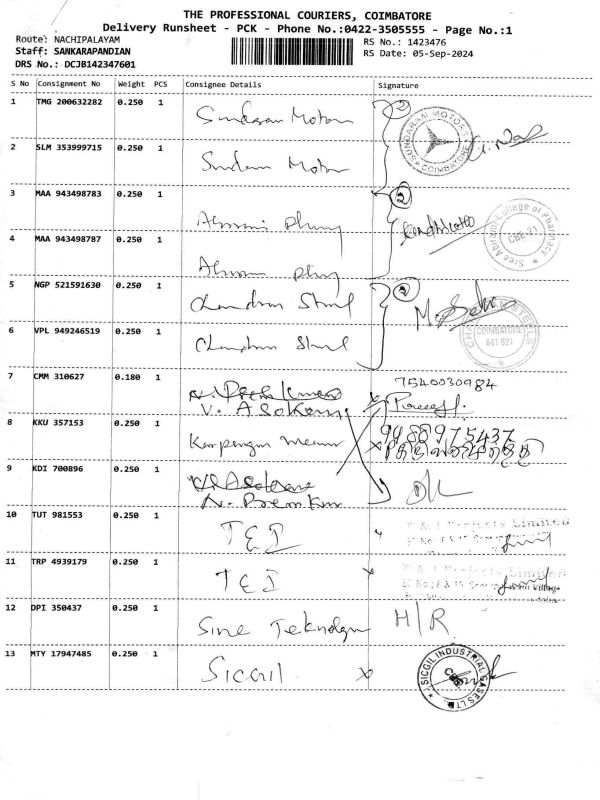 THE PROFESSIONAL COURIERS, COIMBATORE
Delivery Runsheet - PCK - Phone No.:0422-3505555 - Page No.:1
Route: NACHIPALAYAM
RS No.: 1423476
Staff: SANKARAPANDIAN
RS Date: 05-Sep-2024
DRS No.: DCJB142347601
S No Consignment No Weight PCS Consignee Details Signature
1 TMG 200632282 0.250 1
Sundaram Motors
SUNDARAM MOTORS COIMBATORE
2 SLM 353999715 0.250 1
Sundaram Motor
3 MAA 943498783 0.250 1
2
Sree Abirami College of Pharmacy CBE-21
4 MAA 943498787 0.250 1
5 NGP 521591630 0.250 1
Chandran Steel
STEELS COIMBATORE 641 021
6 VPL 949246519 0.250 1
Chandran Steel
7 CMM 310627 0.180 1
7540030984
V. Asokan
8 KKU 357153 0.250 1
9488975437
9 KDI 700896 0.250 1
N. Prem Kumar
10 TUT 981553 0.250 1
TEI
Projects Limited
11 TRP 4939179 0.250 1
TEI
Projects Limited
12 DPI 350437 0.250 1
H/R
13 MTY 17947485 0.250 1
Sicgil
SICGIL INDUSTRIAL GASES LTD. CBE